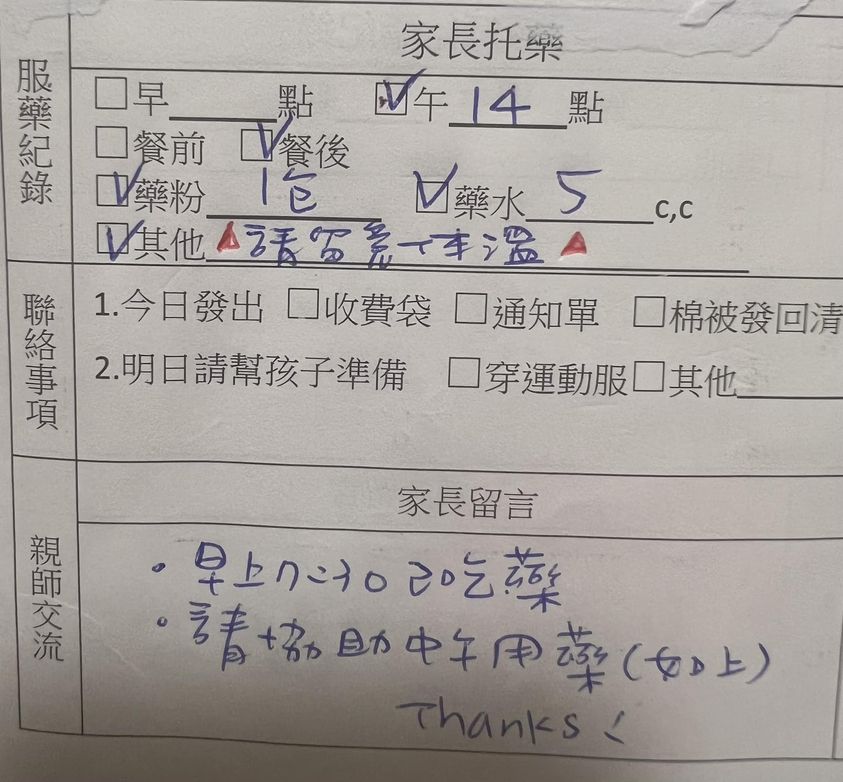 家長托藥
服藥紀錄
□早____點 ☑午 14 點
□餐前 ☑餐後
☑藥粉 1包 ☑藥水 5 c,c
☑其他 △請留意体溫△
聯絡事項
1.今日發出 □收費袋 □通知單 □棉被發回清
2.明日請幫孩子準備 □穿運動服□其他____
家長留言
親師交流
・早上7:30已吃藥
・請協助中午用藥(如上)
Thanks!